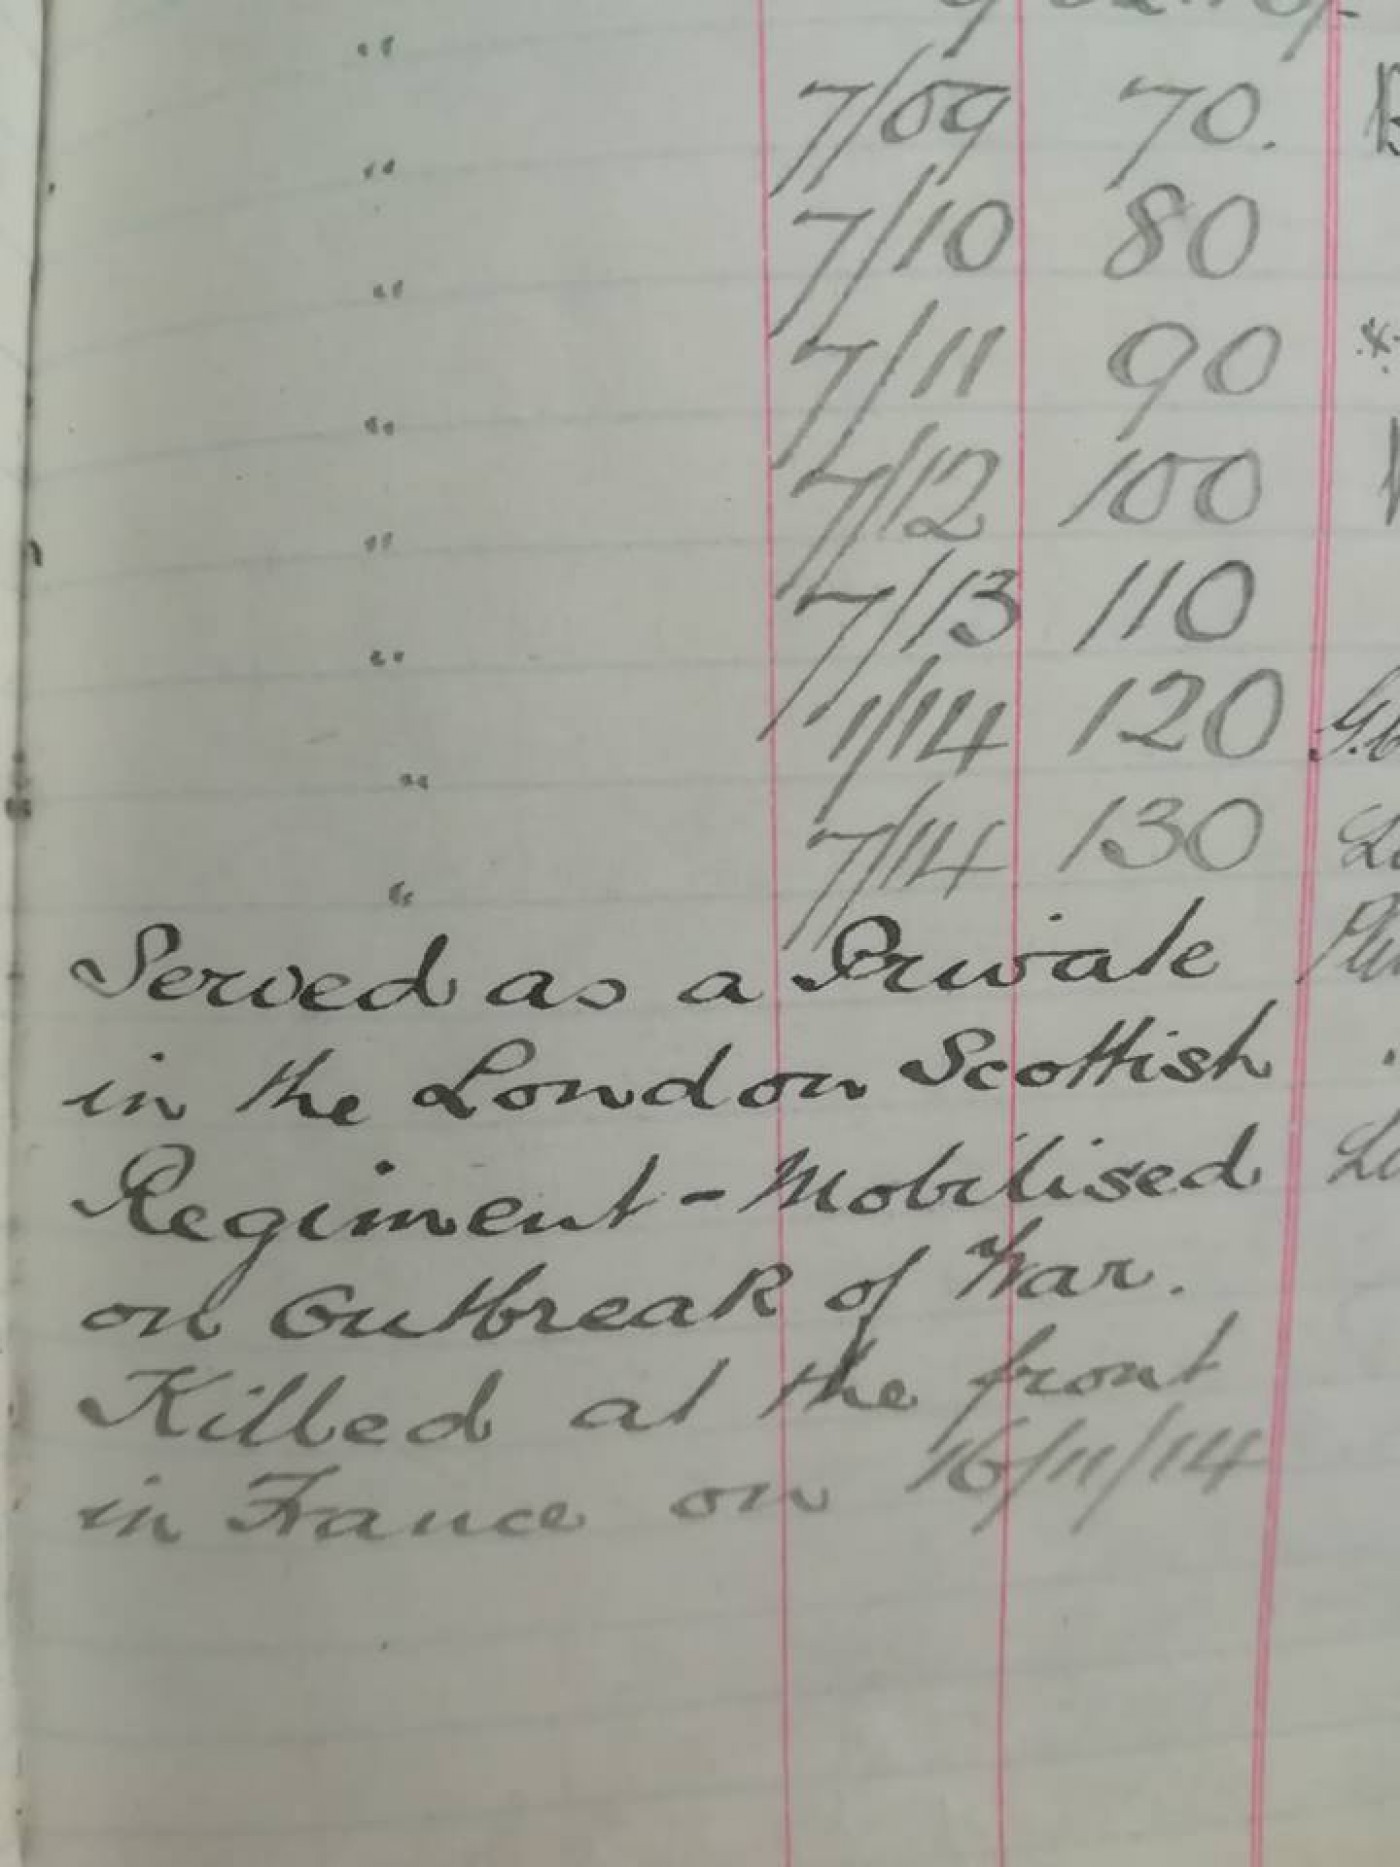 "
7/09 70.
" 7/10 80
" 7/11 90
" 7/12 100
" 7/13 110
" 1/14 120
" 7/14 130
"
Served as a Private
in the London Scottish
Regiment - Mobilised
on Outbreak of War.
Killed at the front
in France on 16/11/14